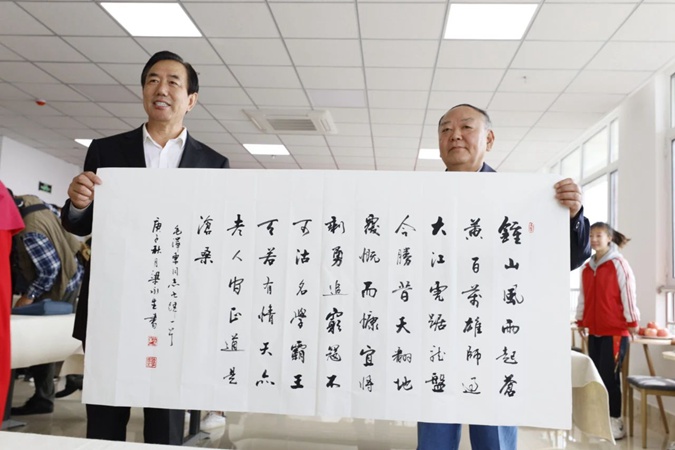 鍾山風雨起蒼
黃百萬雄師過
大江虎踞龍盤
今勝昔天翻地
覆慨而慷宜將
剩勇追窮寇不
可沽名學霸王
天若有情天亦
老人間正道是
滄桑
毛澤東同志七律一首
庚子秋月梁小生書